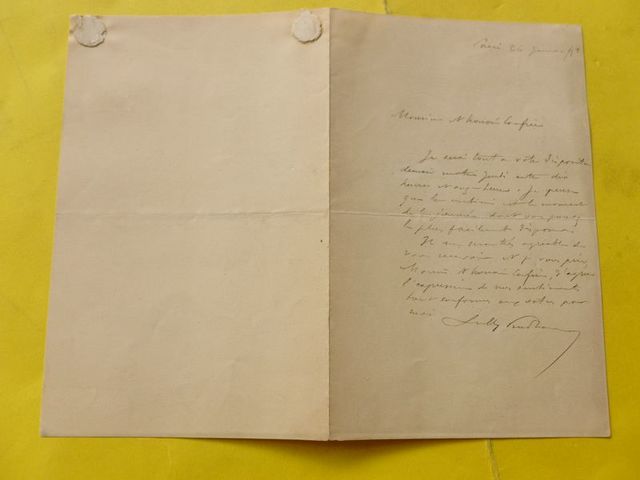 Paris 26 janvier
Monsieur et honoré Confrère
Je serai tout à votre disposition
demain matin jeudi entre dix
heures et onze heures. Je pense
que la matinée est le moment
de la journée dont vous pouvez
le plus facilement disposer.
Il me sera très agréable de
vous recevoir et je vous prie,
Monsieur et honoré Confrère, d'agréer
l'expression de mes sentiments
tout conformes aux votres pour
moi
Sully Prudhomme